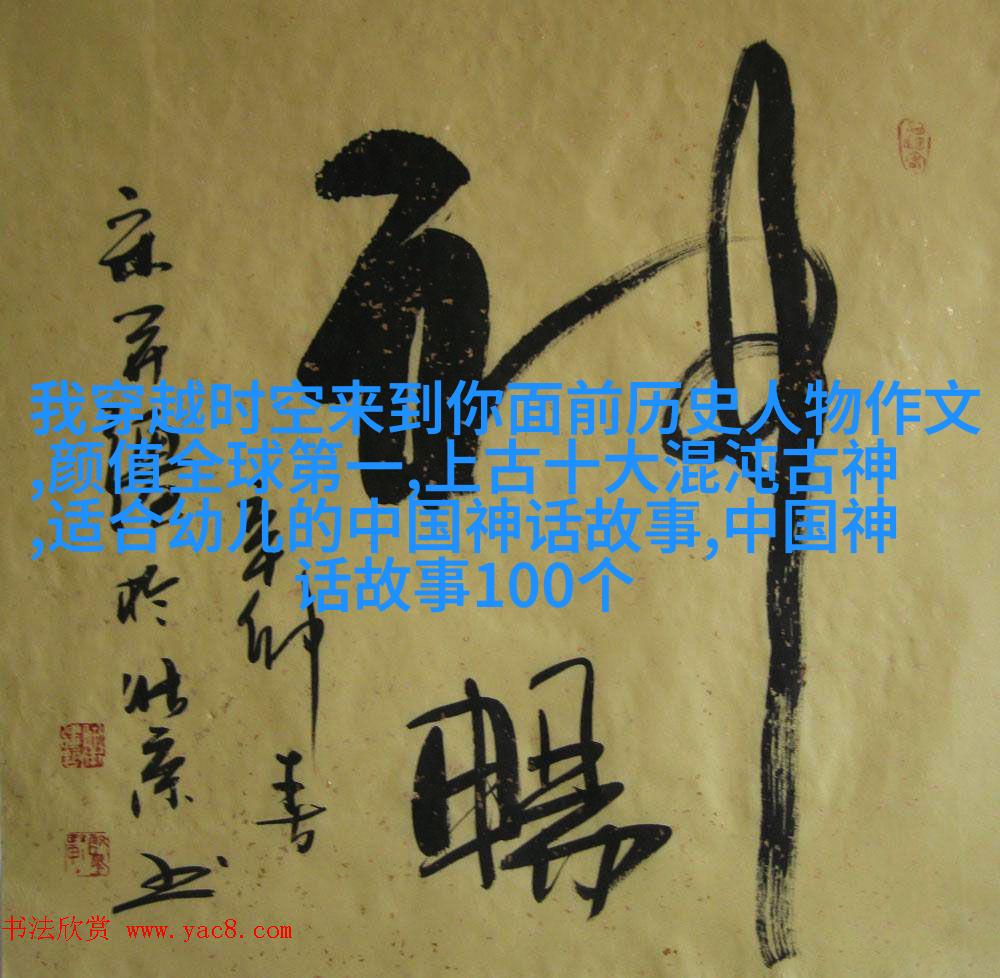 神暢
年仲春
於北京书
我穿越时空来到你面前历史人物作文
,颜值全球第一,上古十大混沌古神
,适合幼儿的中国神话故事,中国神
话故事100个
书法欣赏 www.yac8.com